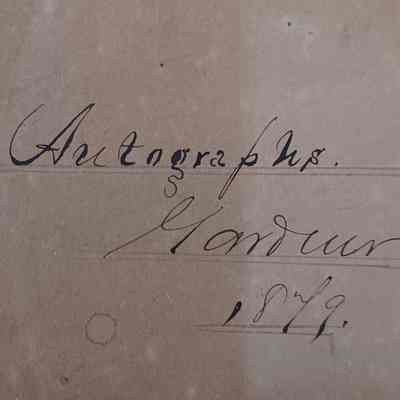 Autographs.
Gardner
1879.